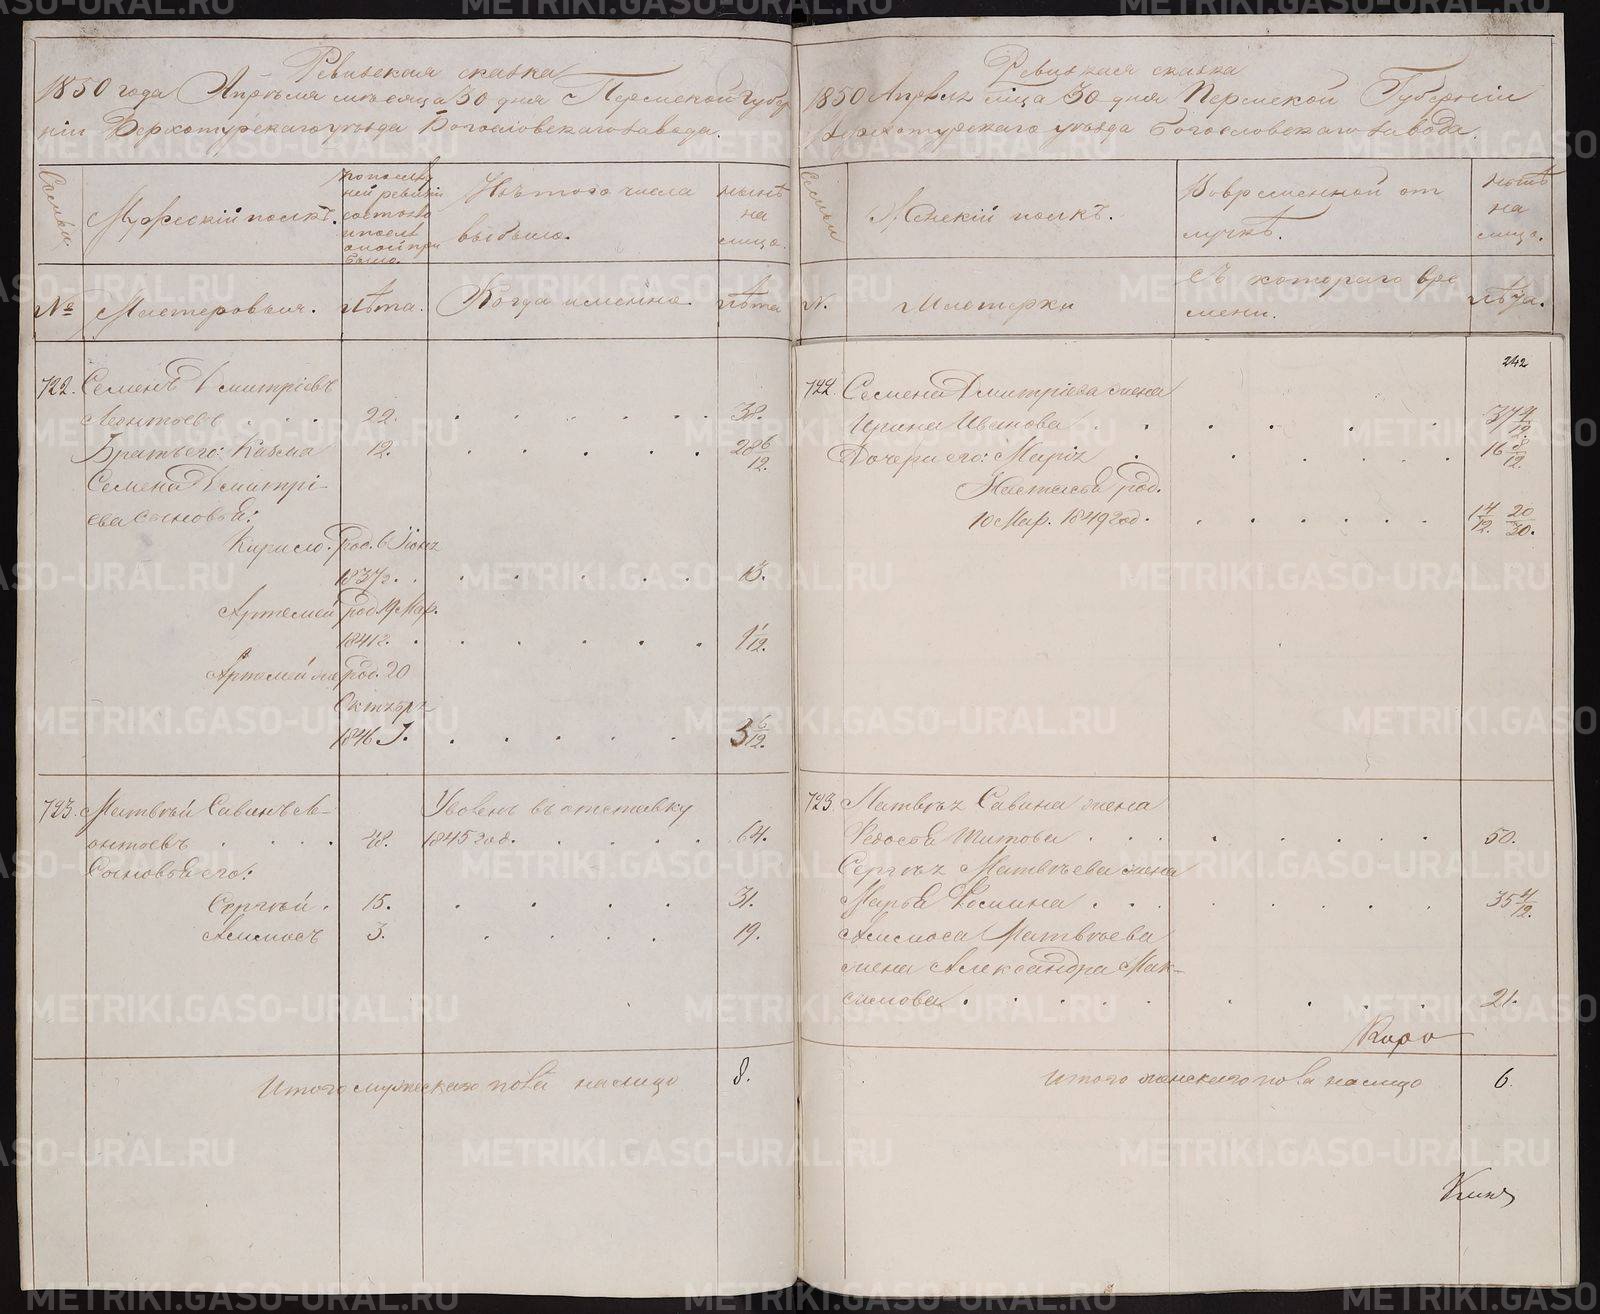 Ревизская сказка
1850 года Апреля месяца 30 дня Пермской Губер
ніи Верхотурскаго уезда Богословскаго завода.
Семьи.
Мужескій полъ.
по послед
ней ревизіи
состояло
и после
оной при
было.
Изъ того числа
выбыло.
ныне
на
лицо.
№
Мастеровыя.
лета.
Когда именно.
лета
722. Семенъ Дмитріевъ
Леонтьевъ . . . 22. . . . . . . 38.
Братъ его: Казма 12. . . . . . 28 6/12.
Семена Дмитрі-
ева сыновья:
Кирило. род. в Іюня
1837г. . . . . . . 13.
Артемей род. 19 Мар.
1841г. . . . . . . 9 1/12.
Артемій же род. 20
Октября
1846 г. . . . . . . 3 6/12.
723. Матвей Савинъ Ле-
онтьевъ . . . . 48.
Уволенъ въ отставку
1845 год. . . . . . 64.
Сыновья его:
Сергей . 15. . . . . 31.
Алимпъ 3. . . . . 19.
Итого мужескаго пола налицо 8.
Ревизская сказка
1850 Апреля м-ца 30 дня Пермской Губерніи
Верхотурскаго уезда Богословскаго завода.
Семьи
Женскій полъ.
Во временной от
лучке.
ныне
на
лицо.
№.
Мастерки
Съ котораго вре
мени.
лета.
242
722. Семена Дмитріева жена
Ирина Иванова . . . . . . . 37 4/12.
Дочери его: Марія . . . . . . 16 8/12.
Настасья род.
10 Мар. 1849 год. . . . . . . 14/12. 20/30.
723. Матвея Савина жена
Федосья Титова . . . . . . . 50.
Сергея Матвеева жена
Марья Фомина . . . . . . . 35 4/12.
Матвеева
жена Александра Мак-
симова . . . . . . . . 21.
Итого женскаго пола налицо 6.
METRIKI.GASO-URAL.RU